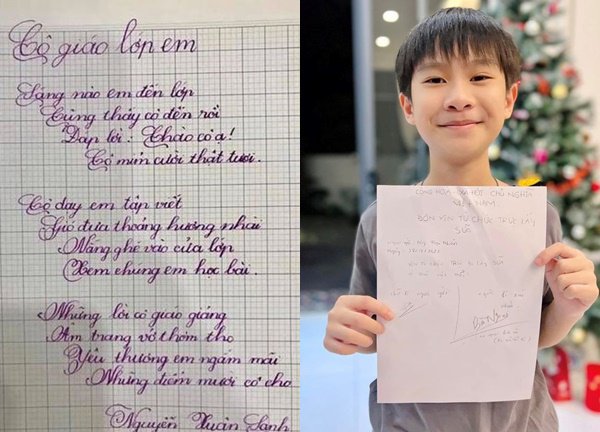 Cô giáo lớp em
Sáng nào em đến lớp
Cũng thấy cô đến rồi
Đáp lời: Chào cô ạ!
Cô mỉm cười thật tươi.
Cô dạy em tập viết
Gió đưa thoảng hương nhài
Nắng ghé vào cửa lớp
Xem chúng em học bài.
Những lời cô giáo giảng
Ấm trang vở thơm tho
Yêu thương em ngắm mãi
Những điểm mười cô cho.
Nguyễn Xuân Sanh
CỘNG HÒA XÃ HỘI CHỦ NGHĨA
VIỆT NAM
ĐƠN XIN TỪ CHỨC TRỰC LẤY
SỮA